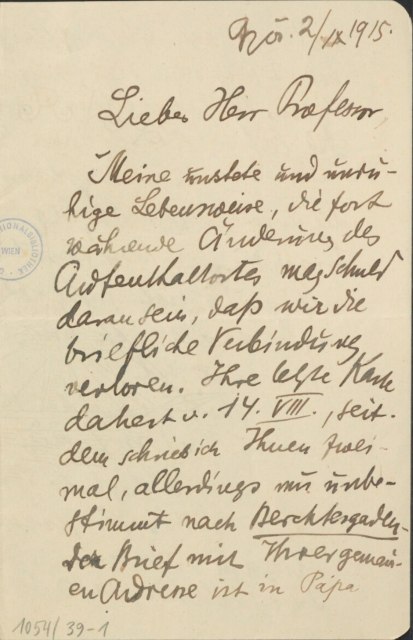 Győr. 2/IX 1915.
Lieber Herr Professor,
Meine unstete und unru-
hige Lebensweise, die fort
währende Änderung des
Aufenthaltortes mag Schuld
daran sein, daß wir die
briefliche Verbindung
verloren. Ihre letzte Karte
datiert v. 14. VIII., seit-
dem schrieb ich Ihnen zwei-
mal, allerdings nur unbe-
stimmt nach Berchtesgaden-
Brief mit Ihrer genau-
en Adresse ist in Pápa
NATIONALBIBLIOTHEK
WIEN
1054/39-1